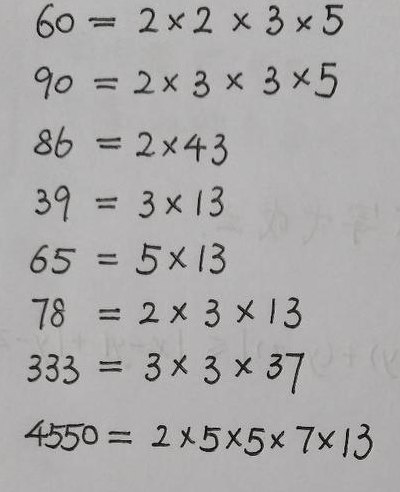 60 = 2 × 2 × 3 × 5
90 = 2 × 3 × 3 × 5
86 = 2 × 43
39 = 3 × 13
65 = 5 × 13
78 = 2 × 3 × 13
333 = 3 × 3 × 37
4550 = 2 × 5 × 5 × 7 × 13